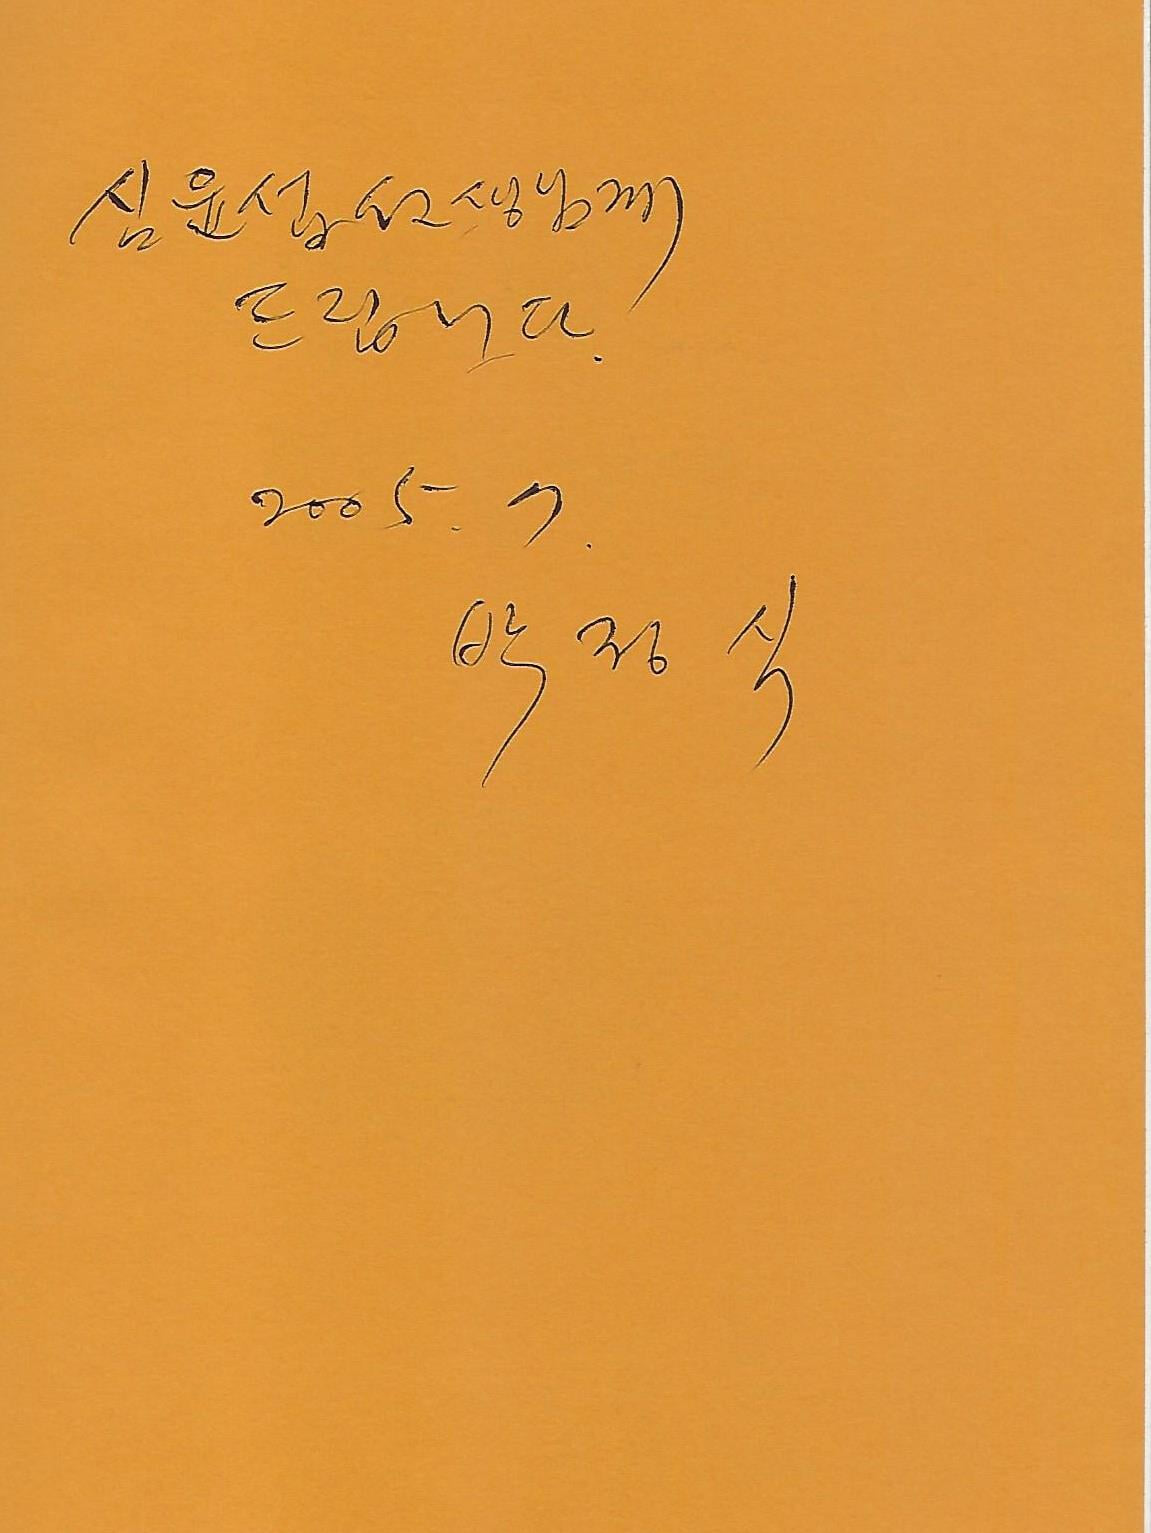 심윤섭 선생님께
드립니다.
2005. 7.
박정식